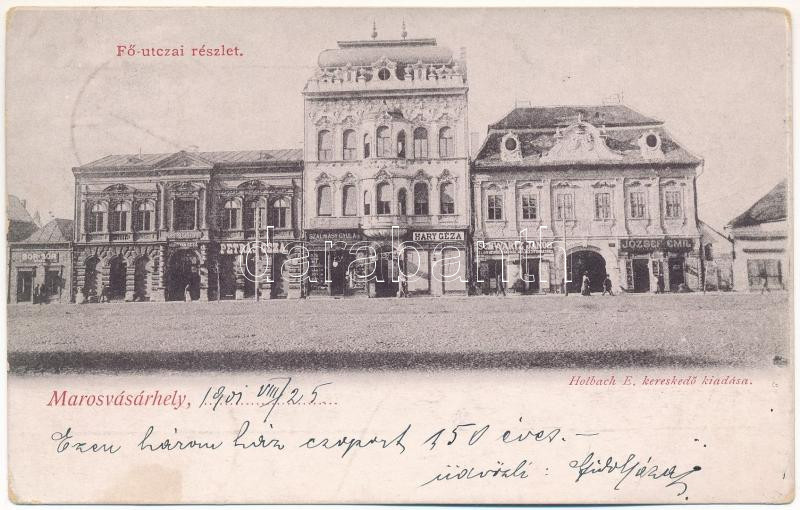 Fő-utczai részlet.
BOR-SÖR
PETRÁS GÉZA
SZALMÁSY GYULA
HARY GÉZA
SCHWARTZ JÁNOS
JÓZSEF EMIL
darabanth
Holbach E. kereskedő kiadása.
Marosvásárhely, 1901 VIII/25
Ezen három ház csoport 150 éves.—
üdvözli: